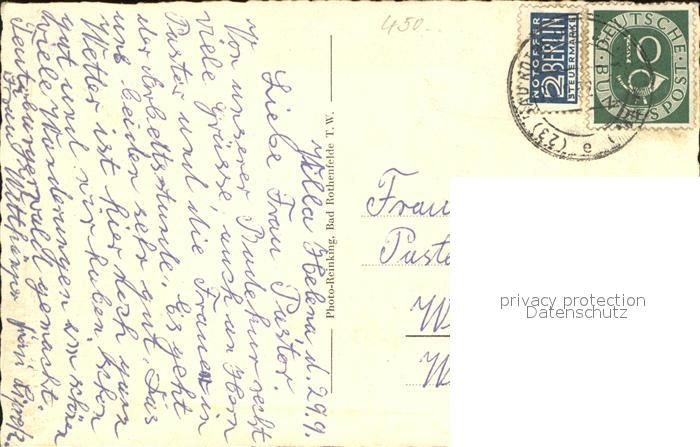 Villa Helena, d. 29.9.
Liebe Frau Pastor.
Von unserer Badekur recht
viele Grüsse, auch an Herrn
Pastor und die Frauen in
der Arbeitsstunde. Es geht
uns beiden sehr gut. Das
Wetter ist hier noch ganz
gut und wir haben schon
viele Wanderungen im schönen
Teutoburgerwald gemacht.
Frau
Photo-Reinking, Bad Rothenfelde T. W.
450.-
NOTOPFER
2 BERLIN
STEUERMARKE
DEUTSCHE BUNDESPOST
10
(23)
Frau
Past
W
W
privacy protection
Datenschutz